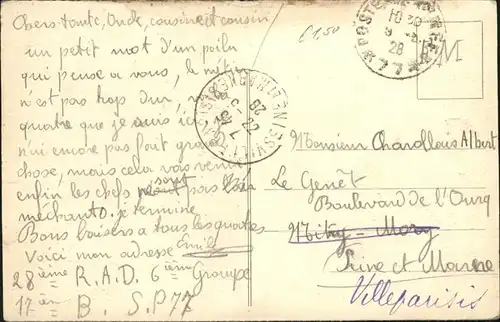 Chers tante, Oncle, cousine et cousin
un petit mot d'un poilu
qui pense a vous, le métier
n'est pas trop dur,
quatre que je suis ici
n'ai encore pas fait gra
chose, mais cela vas venir
enfin les chefs sont pas bien
méchants. je termine
Bons baisers a tous les quatres
Voici mon adresse Emile
28 ième R.A.D. 6 ième Groupe
17 ie B. S.P 77
C150
POSTE
10 30
28
F.M
Monsieur Charollais Albert
Le Genêt
Boulevard de l'Ourcq
Mitry-Mory
Seine et Marne
Villeparisis